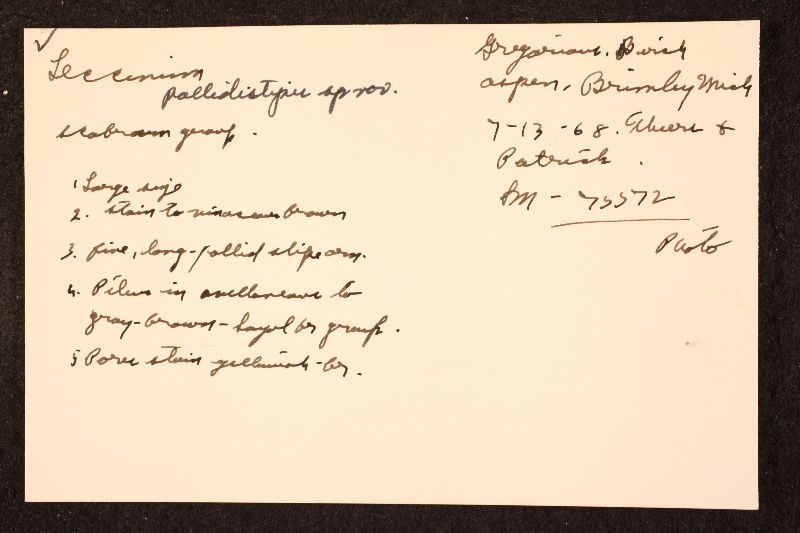 ✓
Leccinum
pallidistipes sp nov.
scabrum group.
1 Large size
2. stain to vinaceous brown
3. fine, long-pallid stipe orn.
4. Pileus in avellaneous to
gray-brown - hazel br group.
5 Pores stain yellowish-br.
Gregarious. Birch
aspen, Brimley Mich
7-13-68. &
Patrick.
Sm - 75572
Photo